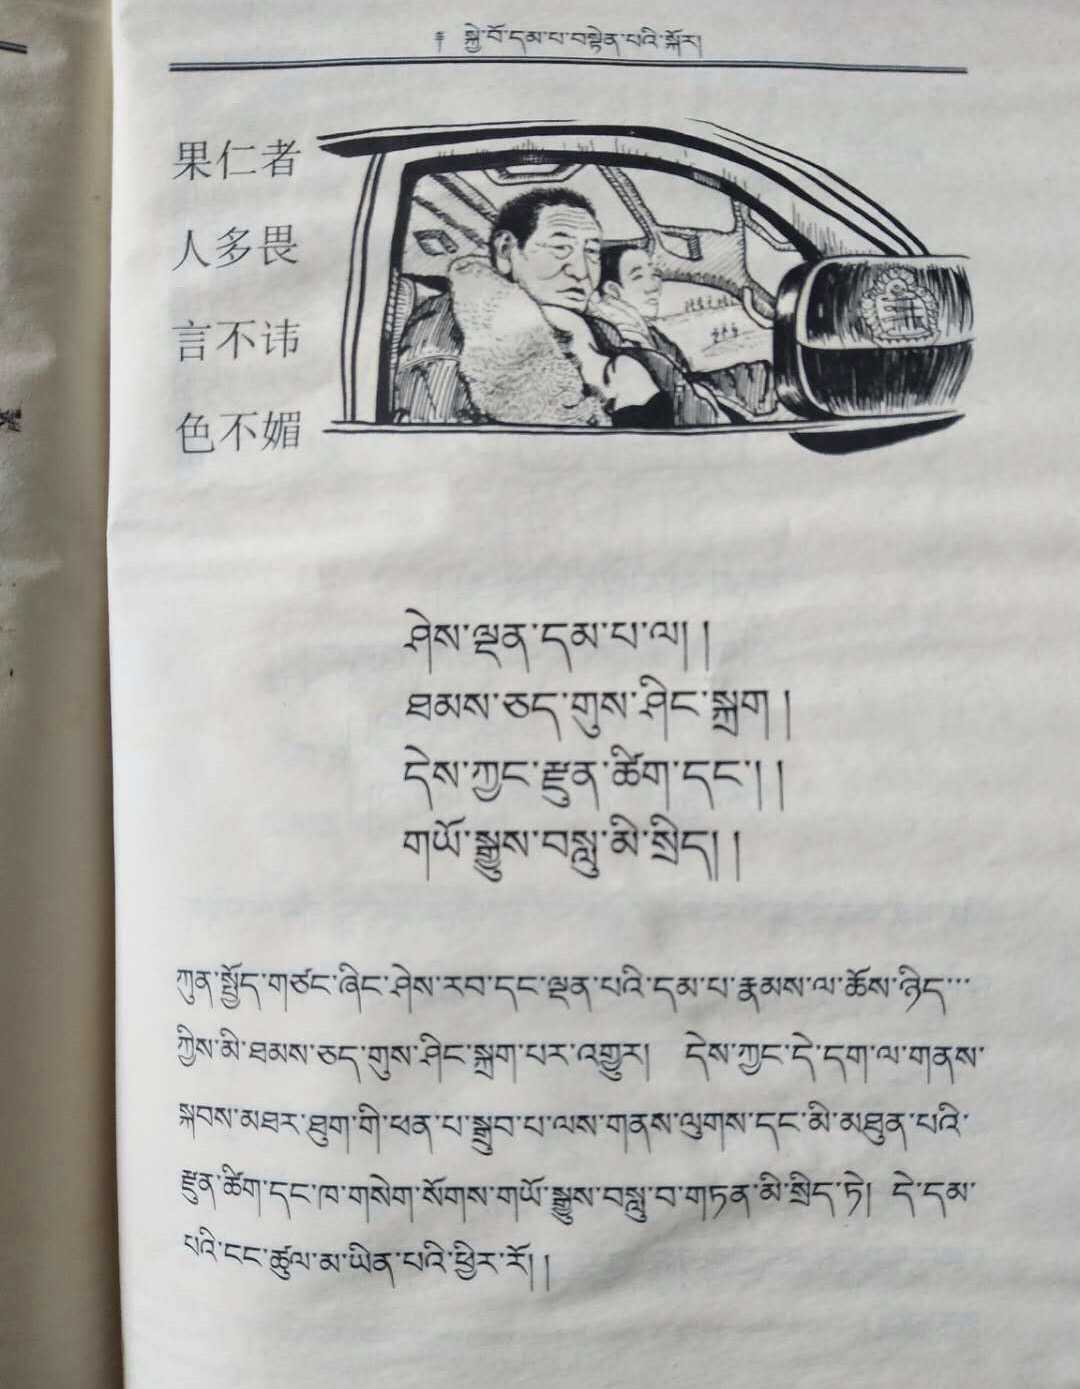 ༈ སྐྱེ་བོ་དམ་པ་བསྟེན་པའི་སྐོར།
果仁者
人多畏
言不讳
色不媚
ཤེས་ལྡན་དམ་པ་ལ། །
ཐམས་ཅད་གུས་ཤིང་སྐྲག །
དེས་ཀྱང་རྫུན་ཚིག་དང་། །
གཡོ་སྒྱུས་བསླུ་མི་སྲིད། །
ཀུན་སྤྱོད་གཙང་ཞིང་ཤེས་རབ་དང་ལྡན་པའི་དམ་པ་རྣམས་ལ་ཆོས་ཉིད་…
ཀྱིས་མི་ཐམས་ཅད་གུས་ཤིང་སྐྲག་པར་འགྱུར། དེས་ཀྱང་དེ་དག་ལ་གནས་
སྐབས་མཐར་ཐུག་གི་ཕན་པ་སྒྲུབ་པ་ལས་གནས་ལུགས་དང་མི་མཐུན་པའི་
རྫུན་ཚིག་དང་ཁ་གསེག་སོགས་གཡོ་སྒྱུས་བསླུ་བ་གཏན་མི་སྲིད་ཏེ། དེ་དམ་
པའི་ངང་ཚུལ་མ་ཡིན་པའི་ཕྱིར་རོ། །